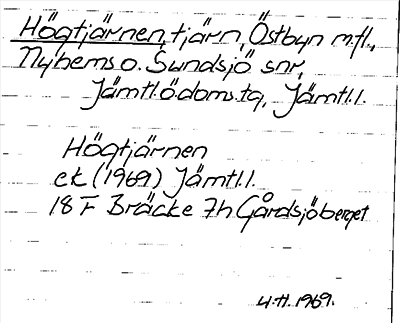 Högtjärnen, tjärn, Östbyn m.fl.,
Nyhems o. Sundsjö snr,
Jämtl.ö.doms.tg, Jämtl.l.
Högtjärnen
ek (1969) Jämtl.l.
18 F Bräcke 7h Gårdsjöberget
4.11.1969.